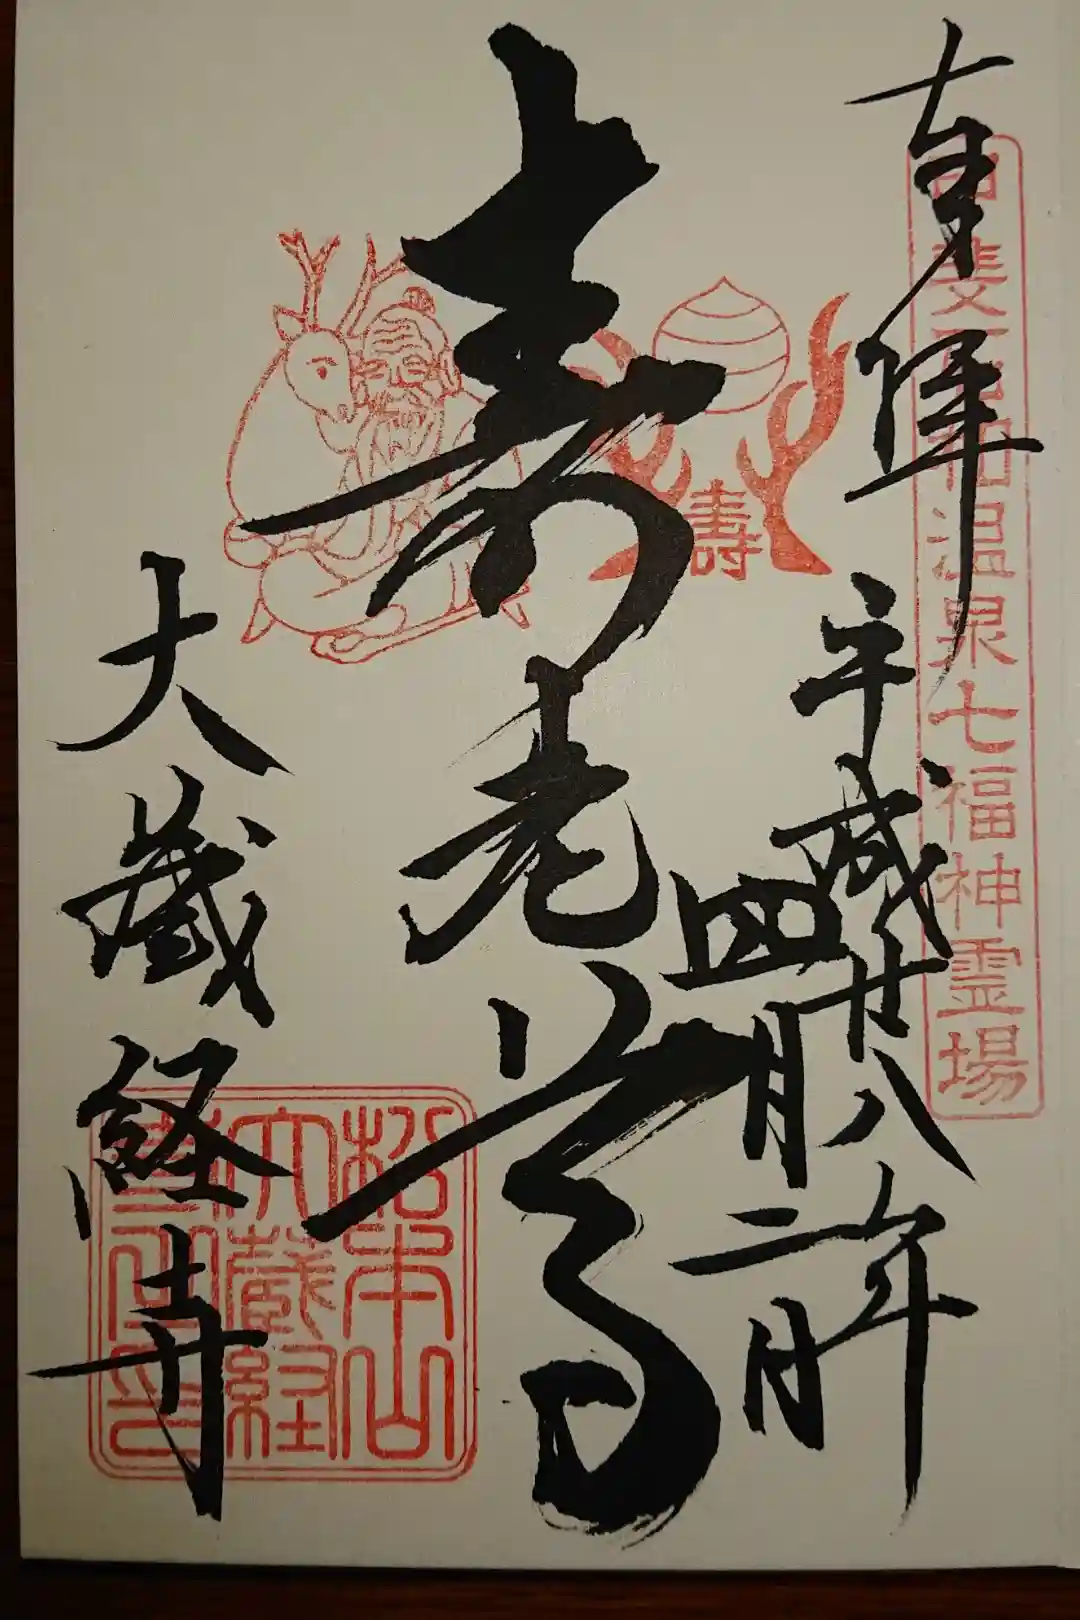 奉拝
甲斐石和温泉七福神霊場
平成廿八年
四月二日
寿老尊
壽
大蔵経寺
松本山
大蔵経
寺之印